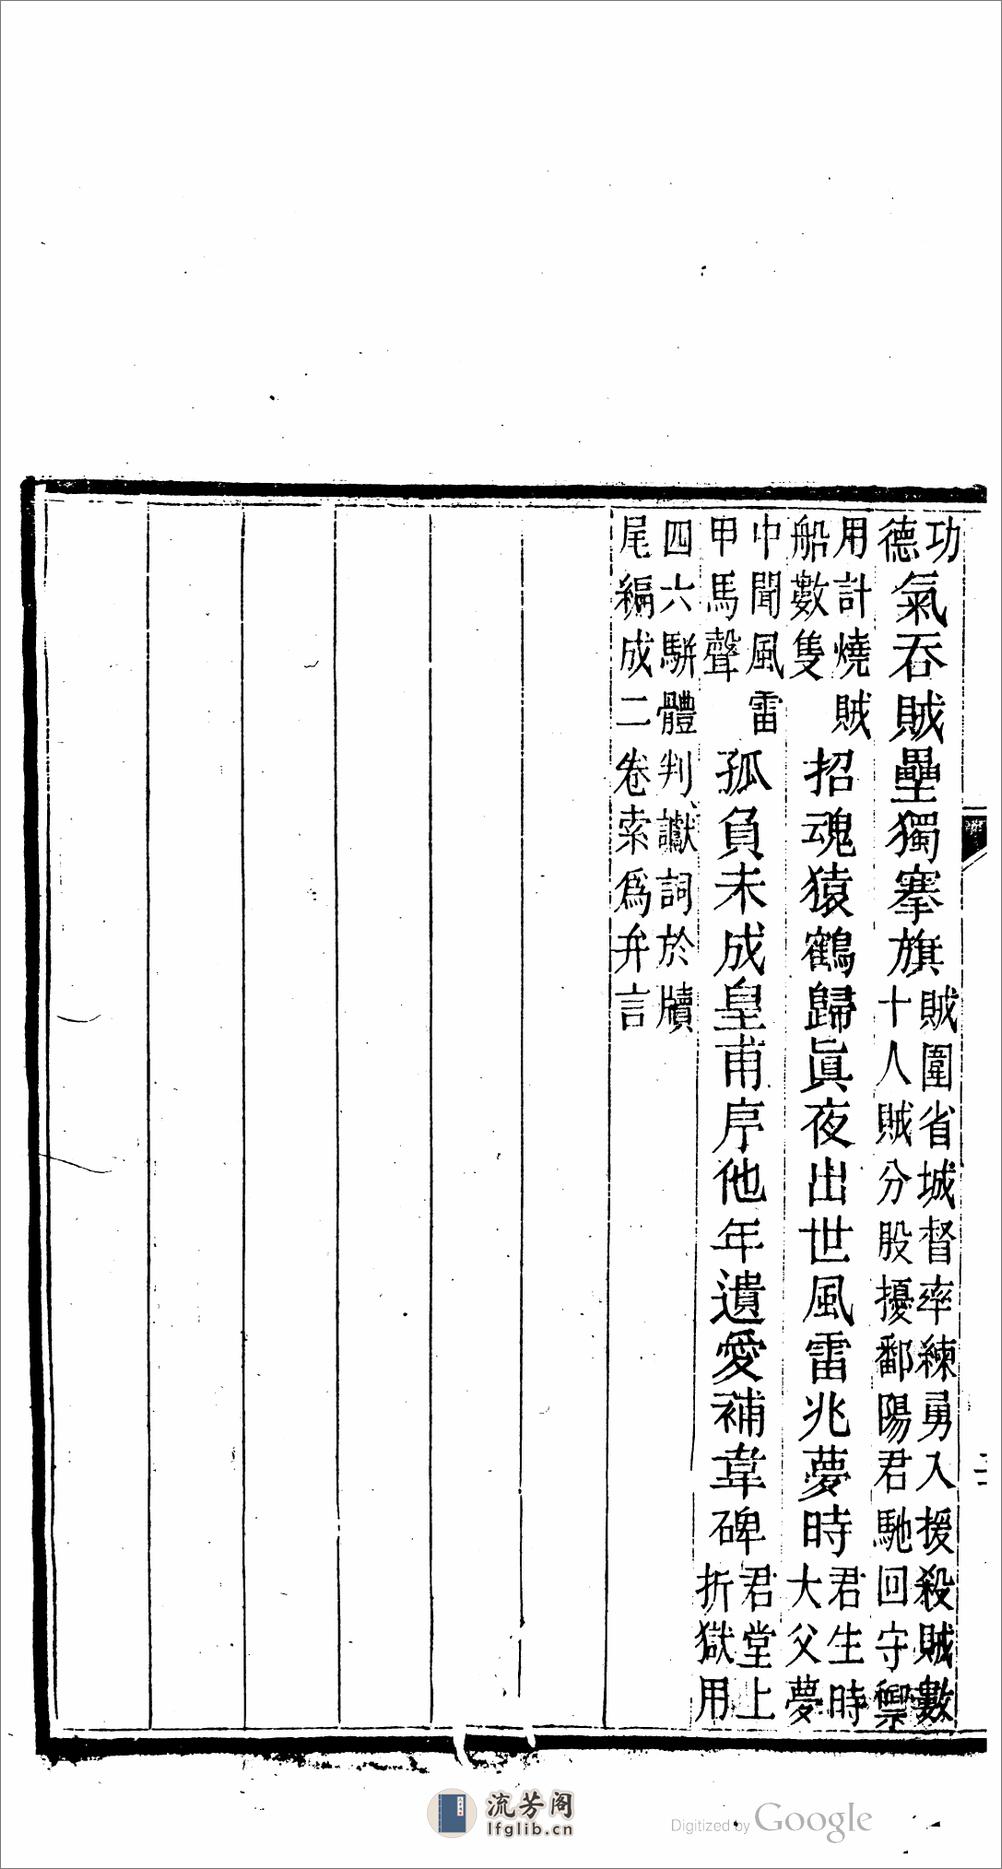 功德氣吞賊壘獨搴旗賊圍省城督率練勇入援殺賊數十人賊分股擾鄱陽君馳回守禦
用計燒賊船數隻招魂猿鶴歸眞夜出世風雷兆夢時君生時大父夢
中聞風雷甲馬聲孤負未成皇甫序他年遺愛補韋碑君堂上折獄用
四六駢體判讞詞於牘尾編成二卷索爲弁言
流芳阁
lfglib.cn
Digitized by Google